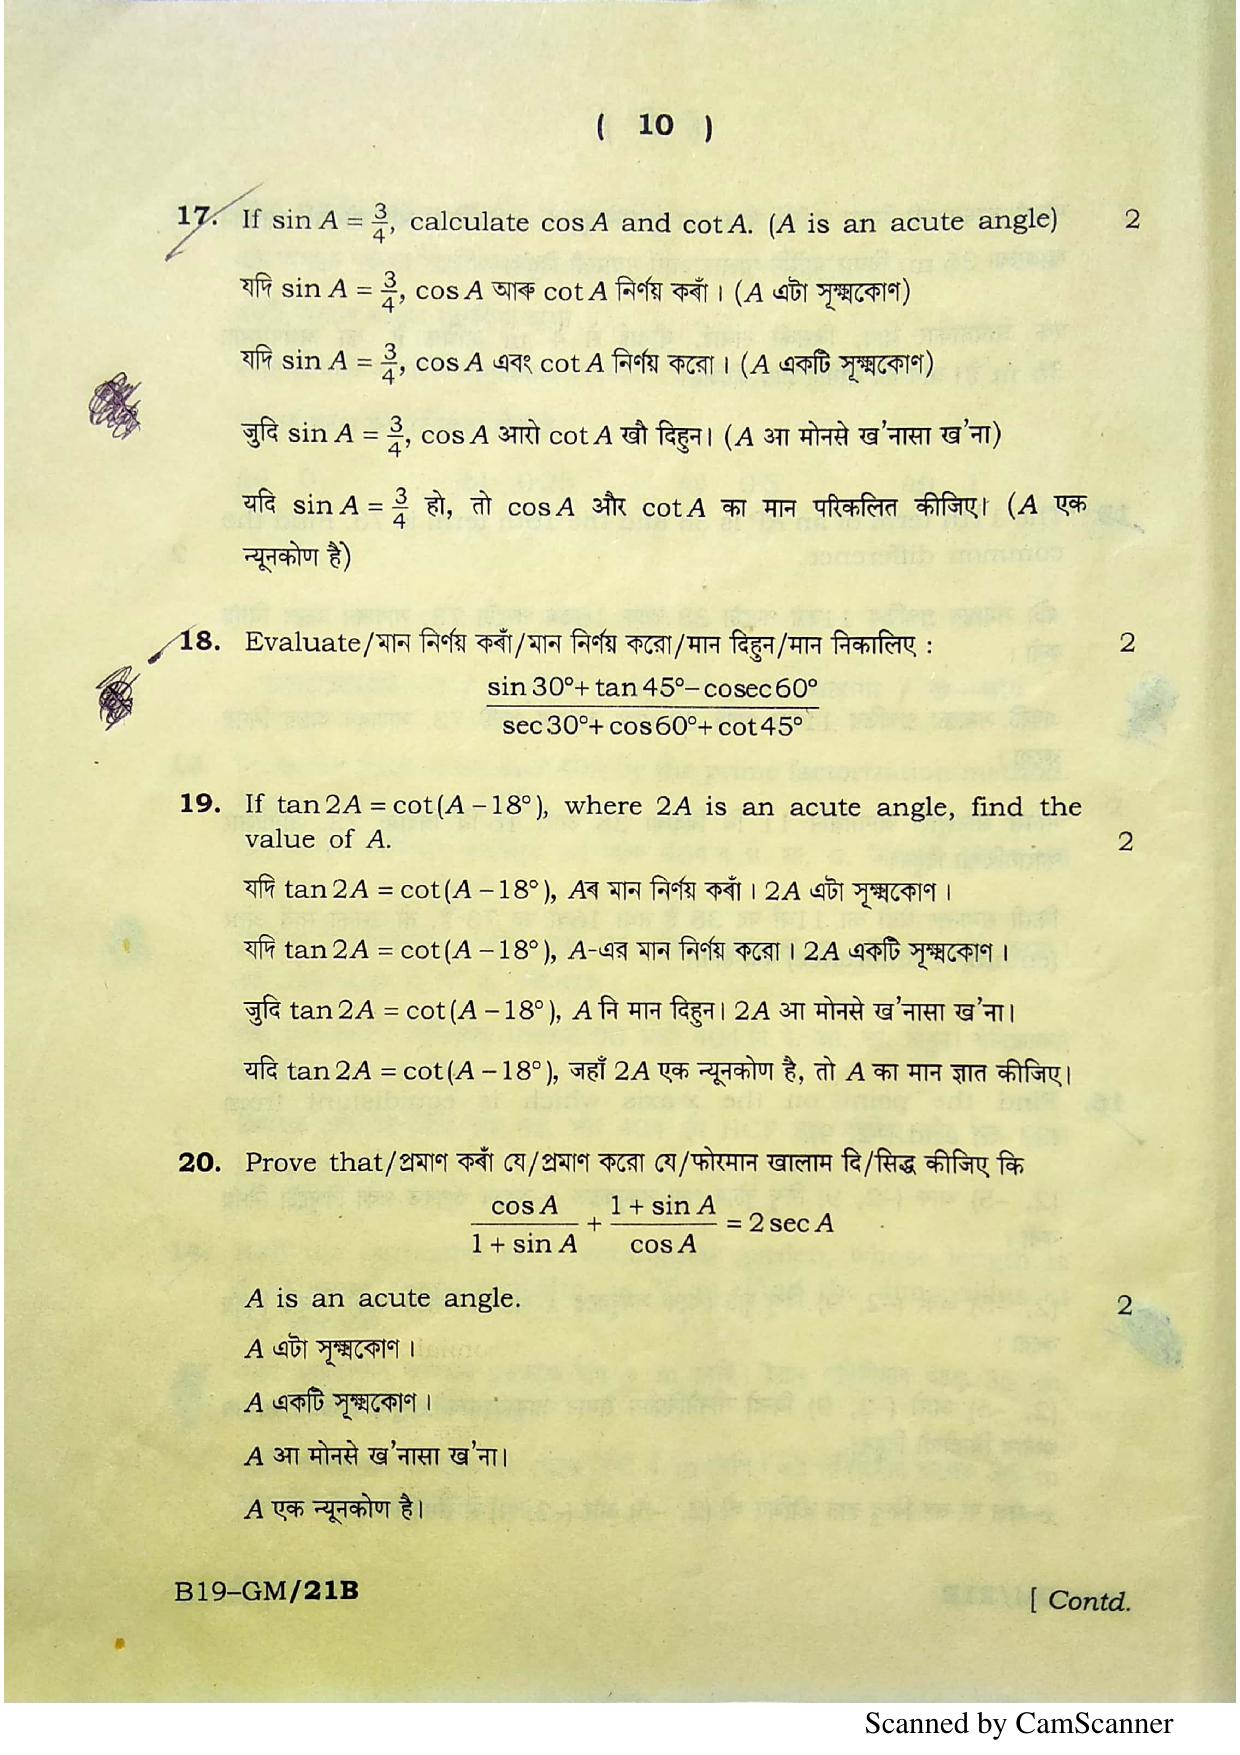 ( 10 )
17. If sin A = 3/4, calculate cos A and cot A. (A is an acute angle) 2
যদি sin A = 3/4, cos A আৰু cot A নিৰ্ণয় কৰাঁ। (A এটা সূক্ষ্মকোণ)
যদি sin A = 3/4, cos A এবং cot A নির্ণয় করো। (A একটি সূক্ষ্মকোণ)
जुदि sin A = 3/4, cos A आरो cot A खौ दिहुन। (A आ मोनसे ख'नासा ख'ना)
यदि sin A = 3/4 हो, तो cos A और cot A का मान परिकलित कीजिए। (A एक
न्यूनकोण है)
18. Evaluate/মান নিৰ্ণয় কৰাঁ/মান নির্ণয় করো/मान दिहुन/मान निकालिए : 2
sin 30°+ tan 45°– cosec 60°
sec 30°+ cos 60°+ cot 45°
19. If tan 2A = cot(A – 18°), where 2A is an acute angle, find the
value of A. 2
যদি tan 2A = cot(A – 18°), Aৰ মান নিৰ্ণয় কৰাঁ। 2A এটা সূক্ষ্মকোণ।
যদি tan 2A = cot(A – 18°), A-এর মান নির্ণয় করো। 2A একটি সূক্ষ্মকোণ।
जुदि tan 2A = cot(A – 18°), A नि मान दिहुन। 2A आ मोनसे ख'नासा ख'ना।
यदि tan 2A = cot(A – 18°), जहाँ 2A एक न्यूनकोण है, तो A का मान ज्ञात कीजिए।
20. Prove that/প্ৰমাণ কৰাঁ যে/প্রমাণ করো যে/फोरमान खालाम दि/सिद्ध कीजिए कि
cos A / (1 + sin A) + (1 + sin A) / cos A = 2 sec A
A is an acute angle. 2
A এটা সূক্ষ্মকোণ।
A একটি সূক্ষ্মকোণ।
A आ मोनसे ख'नासा ख'ना।
A एक न्यूनकोण है।
B19–GM/21B [ Contd.
Scanned by CamScanner